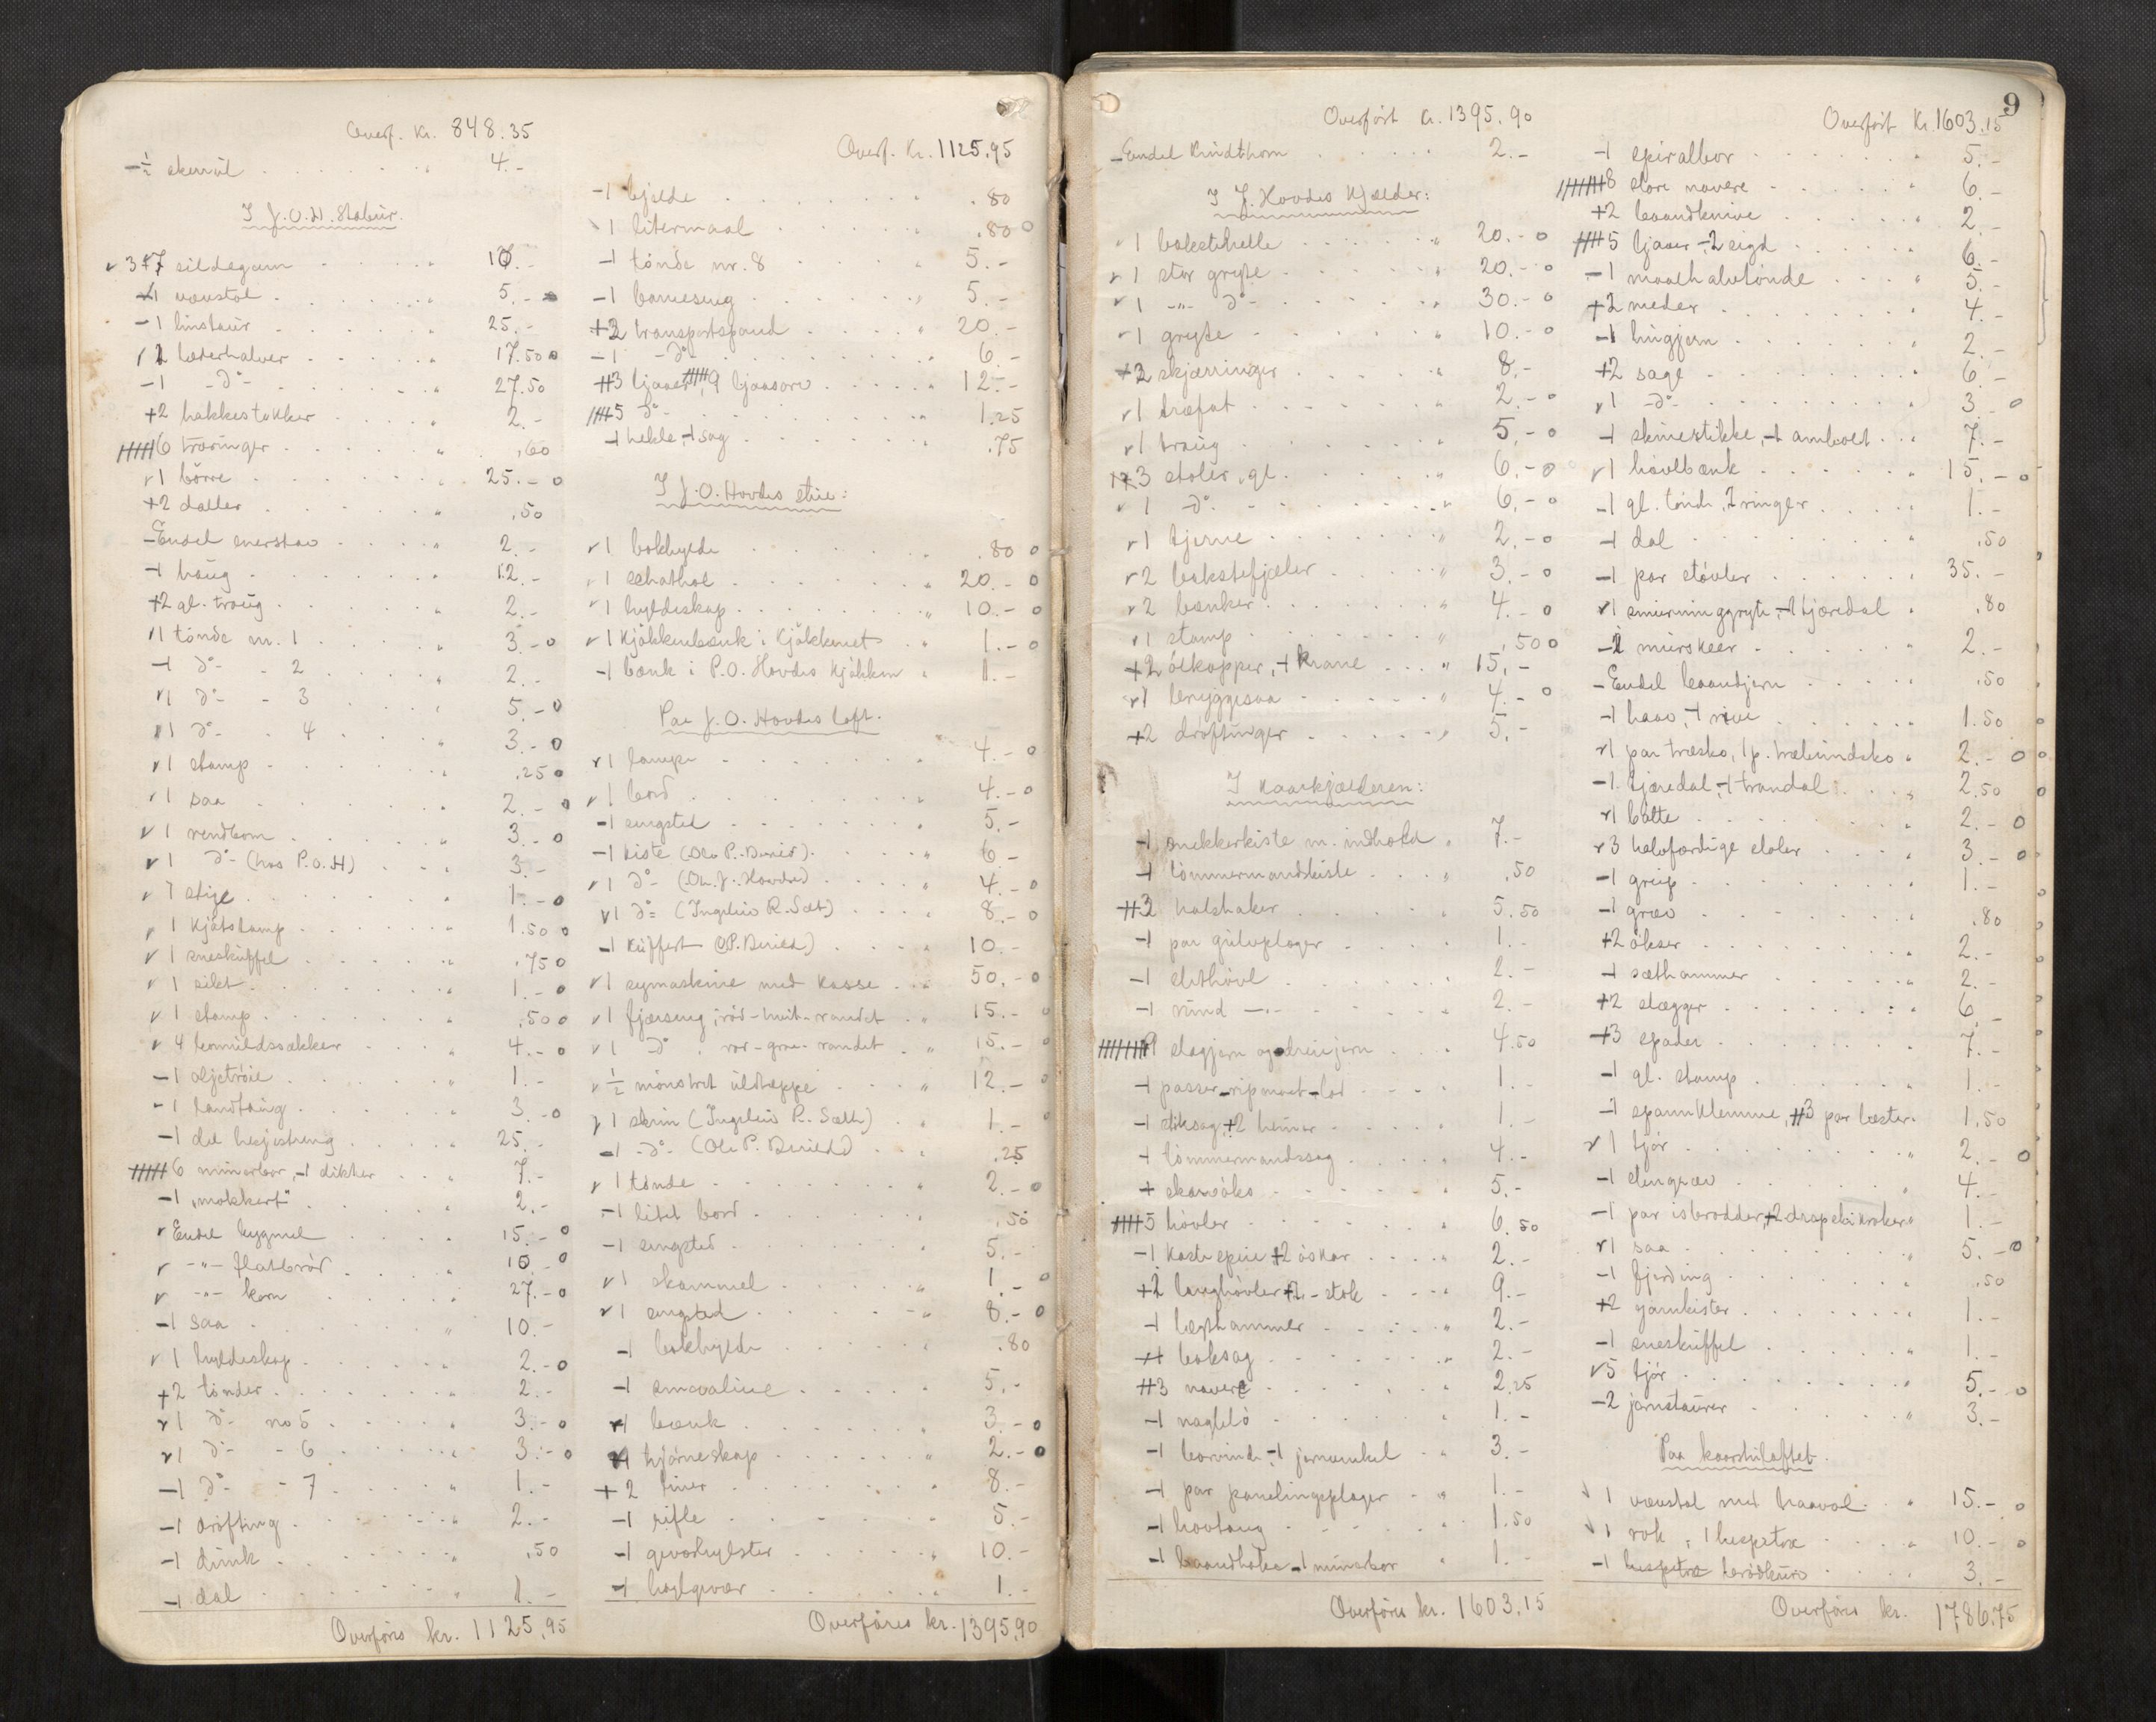 Overf. kr. 848.35
-½ skurvil 4.-
I J.O.H. Stabur.
3+7 sildegarn 10.-
1 vævstol 5.-
-1 linstaur 25.-
1 læderhalver 17.50 o
-1 -d°- 27.50
+2 hakkestokker 2.-
6 træringer .60
1 börre 25.- o
+2 daller .50
-Endel enerstav 2.-
-1 haug 12.-
+2 gl. traug 2.-
1 tönde nr. 1 3.- o
-1 d°- - 2 2.-
1 d°- - 3 5.- o
1 d°- - 4 3.- o
1 stamp .25 o
1 saa 2.- o
1 rendbom 3.- o
1 d°- (hos P.O.H) 3.-
1 stige 1.- o
1 kjötstamp 1.50 o
1 sneskuffel .75 o
1 silet 1.- o
1 stamp .50 o
4 bomuldssækker 4.- o
-1 oljetröie 1.-
-1 handtaug 3.- o
-1 del hesjestreng 25.-
6 minerbor, -1 dikker 7.-
-1 "mokkert" 2.-
Endel bygmel 15.- o
-"- flatbröd 10.- o
-"- korn 27.- o
-1 saa 10.-
1 hyldeskap 2.- o
+2 tönder 2.-
1 d°- no 5 3.- o
1 d°- - 6 3.- o
-1 d°- - 7 1.-
-1 dröfting 2.-
-1 dunk .50
-1 dal 1.-
Overföres kr. 1125.95
Overf. Kr. 1125.95
-1 bjelde .80
1 litermaal .80 o
-1 tönde nr. 8 5.-
-1 barneseng 5.-
+2 transportspand 20.-
-1 -d°- 6.-
3 ljaaer, 9 ljaaorv 12.-
5 d°- 1.25
-1 hekle, -1 sag .75
I J.O. Hovdes stue:
1 bokhylde .80 o
1 schathol 20.- o
1 hyldeskap 10.- o
1 Kjökkenbænk i Kjökkenet 1.- o
-1 bænk i P.O. Hovdes Kjökken 1.-
Paa J.O. Hovdes loft.
1 lampe 4.- o
1 bord 4.- o
-1 sengsted 5.-
-1 kiste (Ola P. Buried) 6.-
1 d°- (Ola J. Hovde) 4.- o
1 d°- (Ingeleiv R. Sæt) 8.- o
-1 Kuffert (O.P. Burild) 10.-
1 symaskine med Kasse 50.- o
1 fjærseng, röd-hvit-randet 15.- o
1 d°- . rör-graa-randet 15.- o
½ mönstret uldtæppe 12.- o
1 skrin (Ingeleiv R. Sæth) 1.- o
-1 -d°- (Ola P. Burild) .25
1 tönde 2.- o
-1 litet bord .50
-1 sengsted 5.-
1 skammel 1.- o
1 sengsted 8.- o
-1 bokhylde .80
-1 smaaline 5.-
1 bænk 3.- o
1 hjörneskap 2.- o
+2 liner 8.-
-1 rifle 5.-
-1 geværhylster 10.-
-1 haglgevær 1.-
Overföres kr. 1395.90
9
Overfört kr. 1395.90
-Endel Krudthorn 2.-
I J. Hovdes Kjælder:
1 bakstehelle 20.- o
1 stor gryte 20.- o
1 -"- d°- 30.- o
1 gryte 10.- o
+2 skjærringer 8.-
1 træfat 2.- o
1 traug 5.- o
3 stoler, gl. 6.- o
1 -d°- 6.- o
1 tjerne 2.- o
2 bakstefjæler 3.- o
2 bænker 4.- o
1 stamp .50 o
+2 ölkopper, -1 krane 15.-
1 bryggesaa 4.- o
+2 dröftinger 5.-
I Kaarkjælderen:
-1 snekkerkiste m. indhold 7.-
-1 tömmermandskiste .50
3 halshaker 5.50
-1 par gulvploger 1.-
-1 slethövl 2.-
-1 rund -"- 2.-
stagjern og dreiejern 4.50
-1 passer -ripmaat -lod 1.-
-1 stiksag, +2 hemar 1.-
-1 tömmermandssag 4.-
-1 skaröks 5.-
5 hövler 6.50
-1 Kaste spuie +2 öskar 2.-
+2 langhövler +2 -stok 9.-
-1 lægthammer 2.-
-1 boksag 2.-
3 navere 2.25
-1 naglelö 1.-
-1 borvinde, -1 jernvinkel 3.-
-1 par panelingsploger 1.-
-1 hovtang 1.50
-1 baandhake -1 minerbor 1.-
Overföres kr. 1603.15
Overfört Kr. 1603.15
-1 spiralbor 5.-
8 store navere 6.-
+2 baandknive 2.-
5 ljaaer -2 sigd 6.-
-1 maalhalvtönde 5.-
+2 meder 4.-
-1 hugjern 2.-
+2 sage 6.-
1 -d°- 3.- o
-1 skinestikke, -1 ambolt 7.-
1 hövlbænk 15.- o
-1 gl. tönde, 7 ringer 1.-
-1 dal .50
-1 par stövler 35.-
1 smurninggryte, -1 tjæredal .80
-2 murskeer 2.-
-Endel baandjern .50
-1 haav, -1 rive 1.50
1 par træsko, 1 p. træbundsko 2.- o
-1 tjæredal, -1 trandal 2.50
1 bötte 2.- o
3 halvfærdige stoler 3.- o
-1 greip 1.-
-1 grev .80
+2 ökser 2.-
-1 sæthammer 2.-
+2 slægger 6.-
+3 spader 7.-
-1 gl. stamp 1.-
-1 spannklemme, 3 par læster 1.50
1 tjör 2.- o
-1 stengrev 4.-
-1 par isbrodder, +2 drapskikroker 1.-
1 saa 5.- o
-1 fjerding .50
+2 garnkister 1.-
-1 sneskuffel 1.-
5 tjör 5.- o
-2 jarnstaurer 3.-
Paa kaarstuloftet.
1 vævstol med haavol 15.- o
1 rok, 1 hespetræ 10.- o
-1 hespetræ brödkurv 3.-
Overföres kr. 1786.75